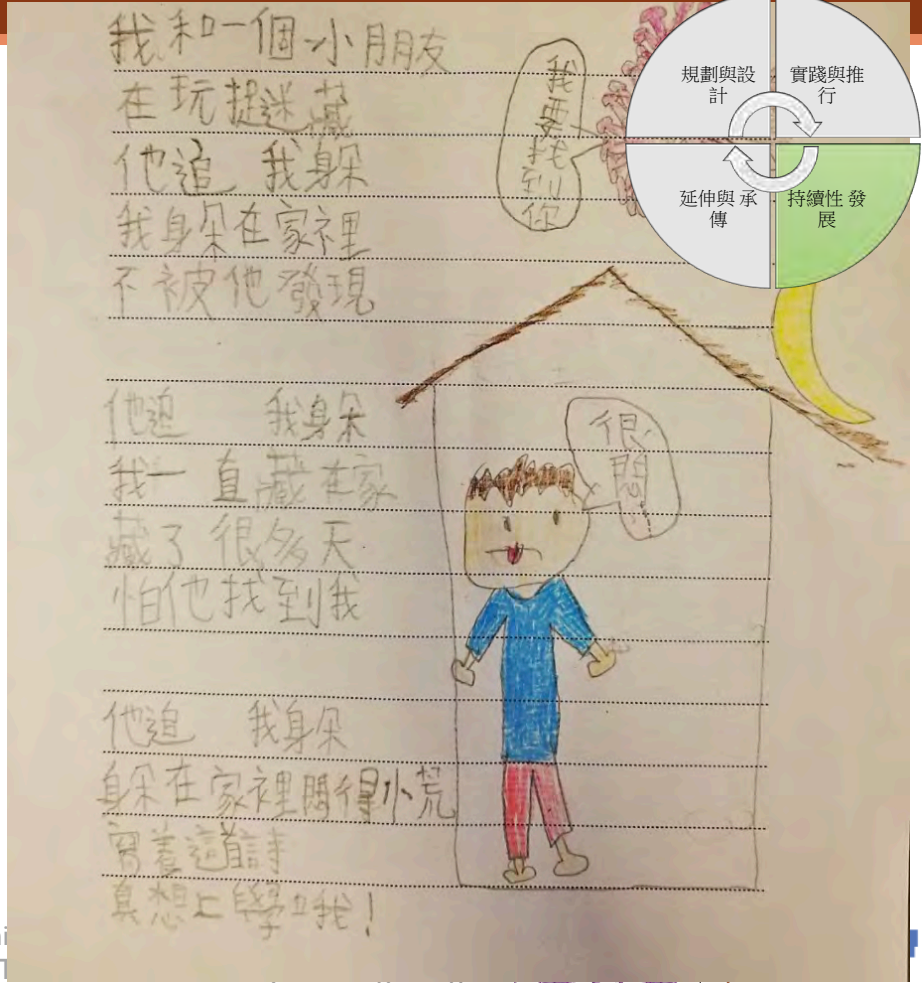 我和一個小朋友
在玩捉迷藏
他追 我躲
我躲在家裡
不被他發現
他追 我躲
我一直藏在家
藏了很多天
怕他找到我
他追 我躲
躲在家裡悶得慌
寫着這首詩
真想上學哦！
我要找到你
很悶
規劃與設
計
實踐與推
行
延伸與 承
傳
持續性 發
展